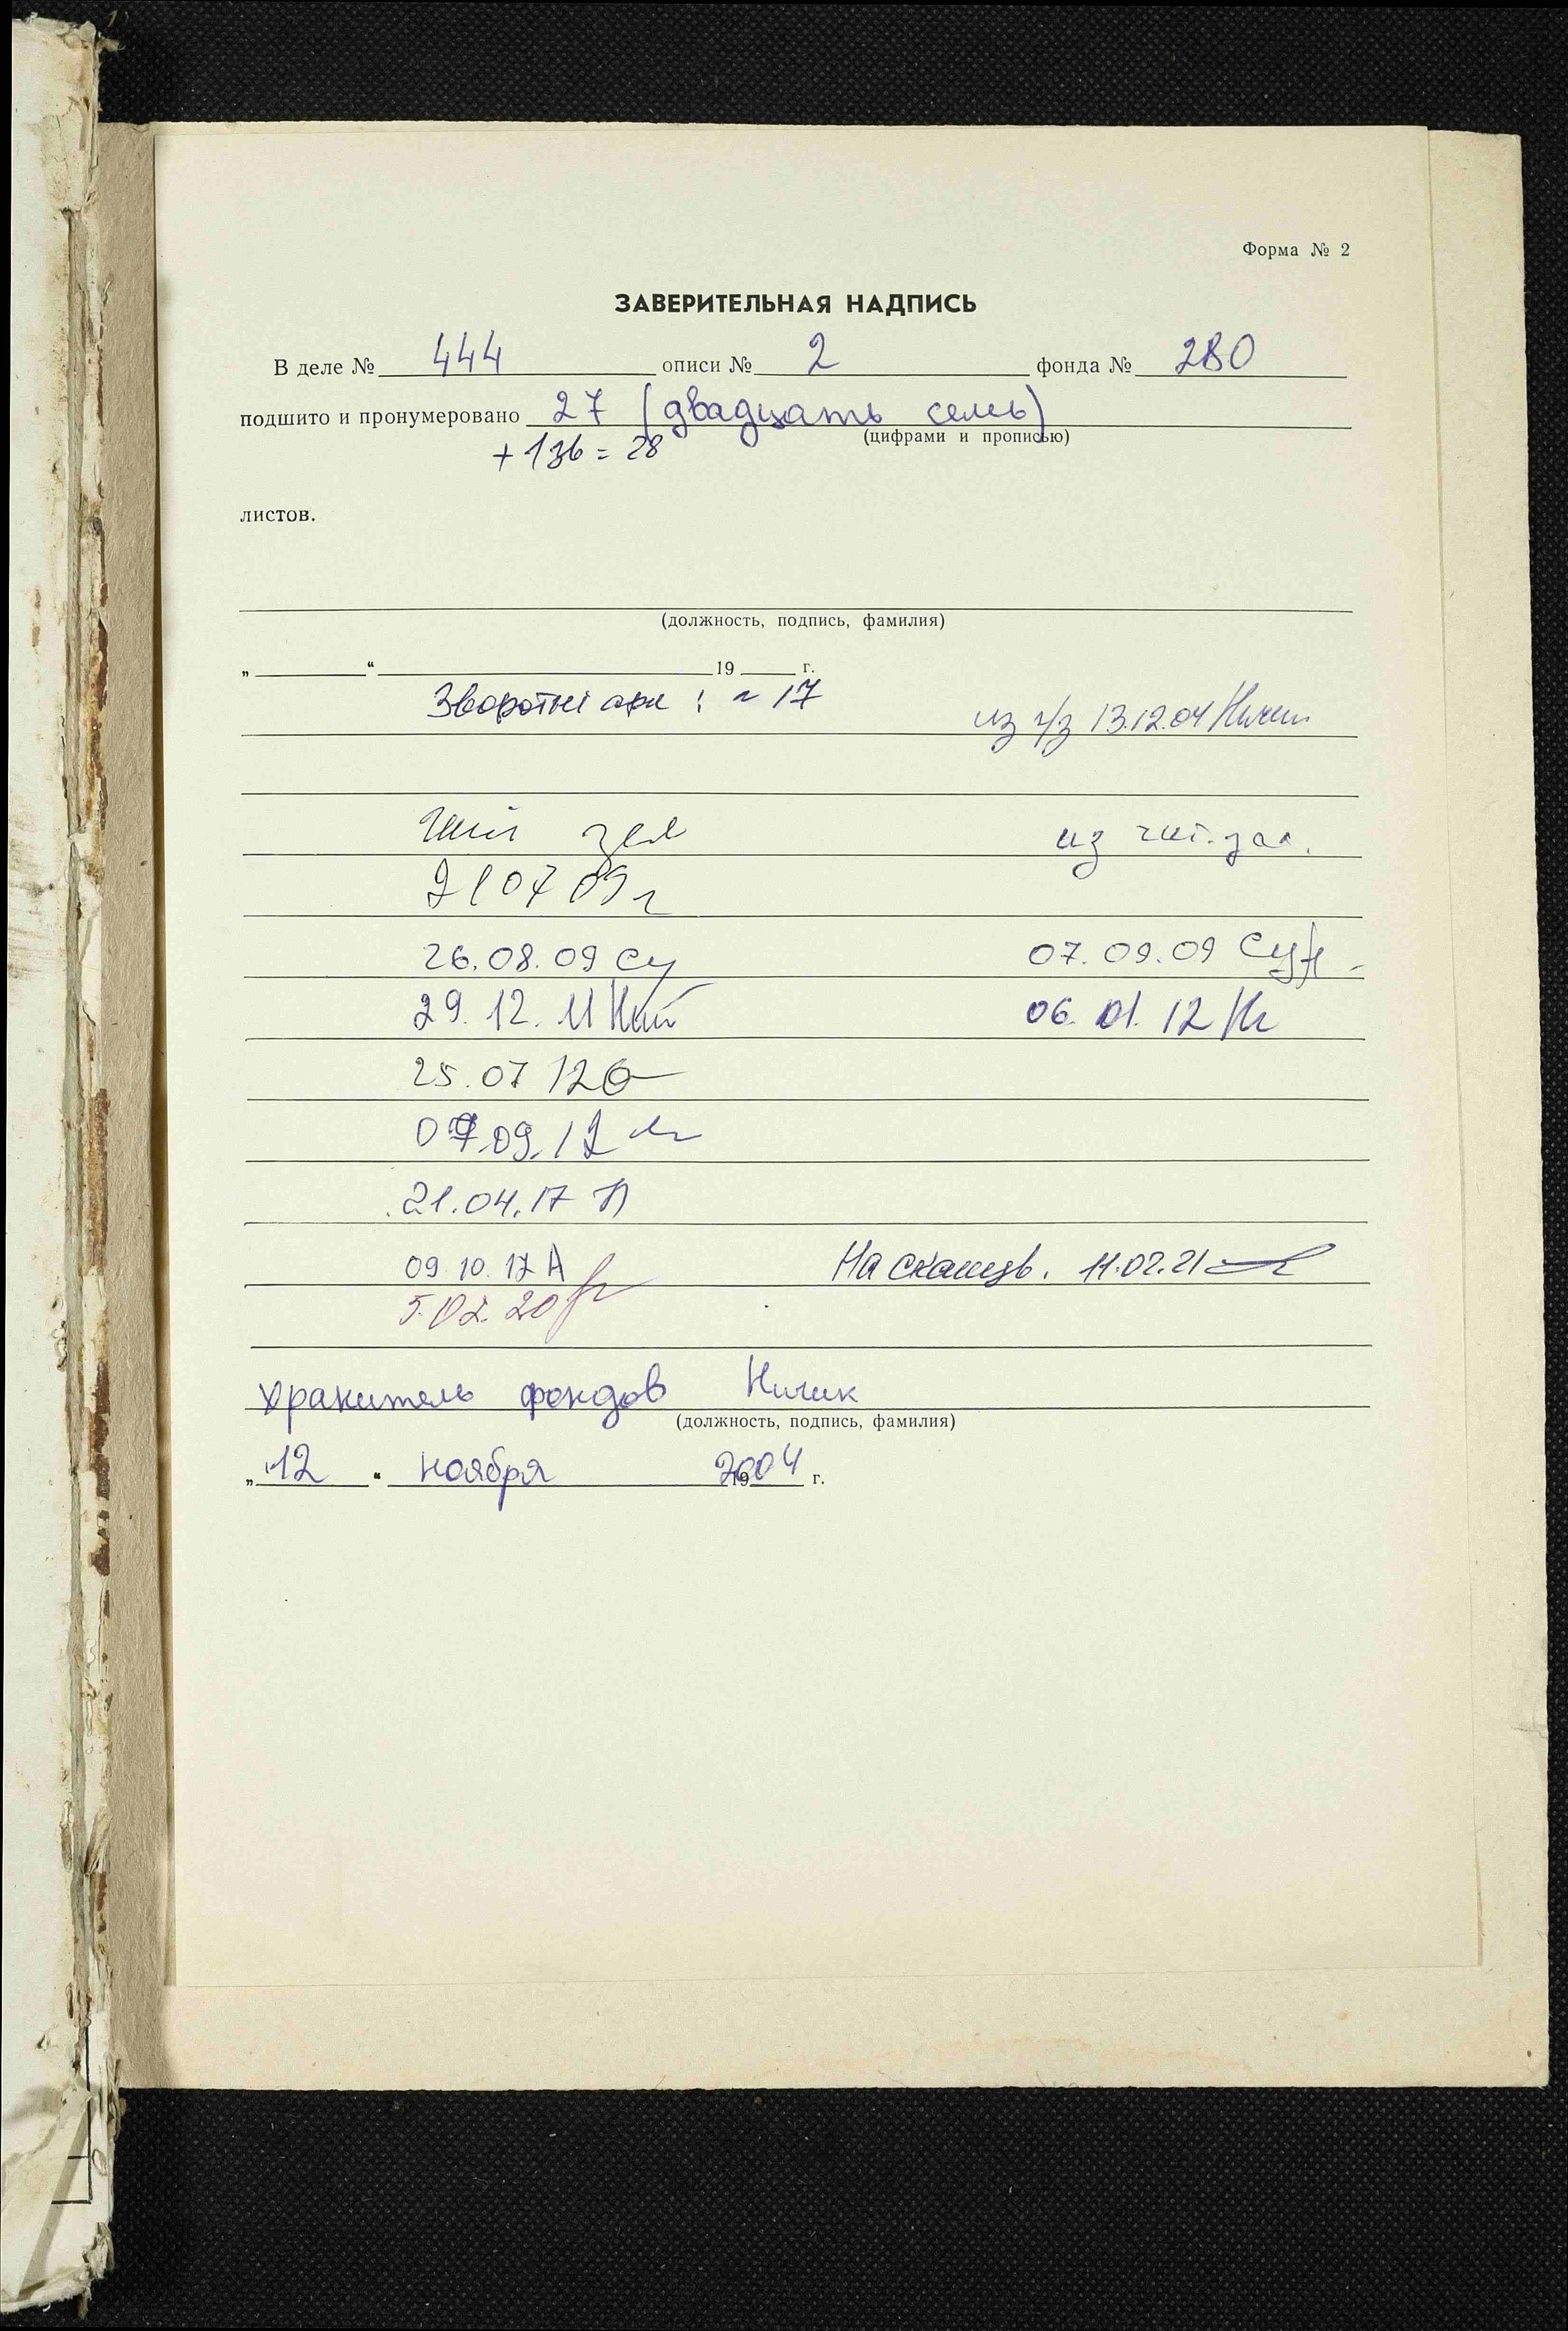 Форма № 2
ЗАВЕРИТЕЛЬНАЯ НАДПИСЬ
В деле № 444 описи № 2 фонда № 280
подшито и пронумеровано 27 (двадцать семь)
(цифрами и прописью)
+ 1зб = 28
листов.
(должность, подпись, фамилия)
„ “ 19 г.
Зворотні арк : 17
из ч/з 13.12.04 Ничик
Чит зал из чит. зал.
21 07 09 г
26.08.09 07.09.09
29.12.11 06.01.12
25.07 12
09.12
21.04.17
09 10. 17 А На сканув. 11.02.21
5.02.20
хранитель фондов Ничик
(должность, подпись, фамилия)
„12“ ноября 2004 г.